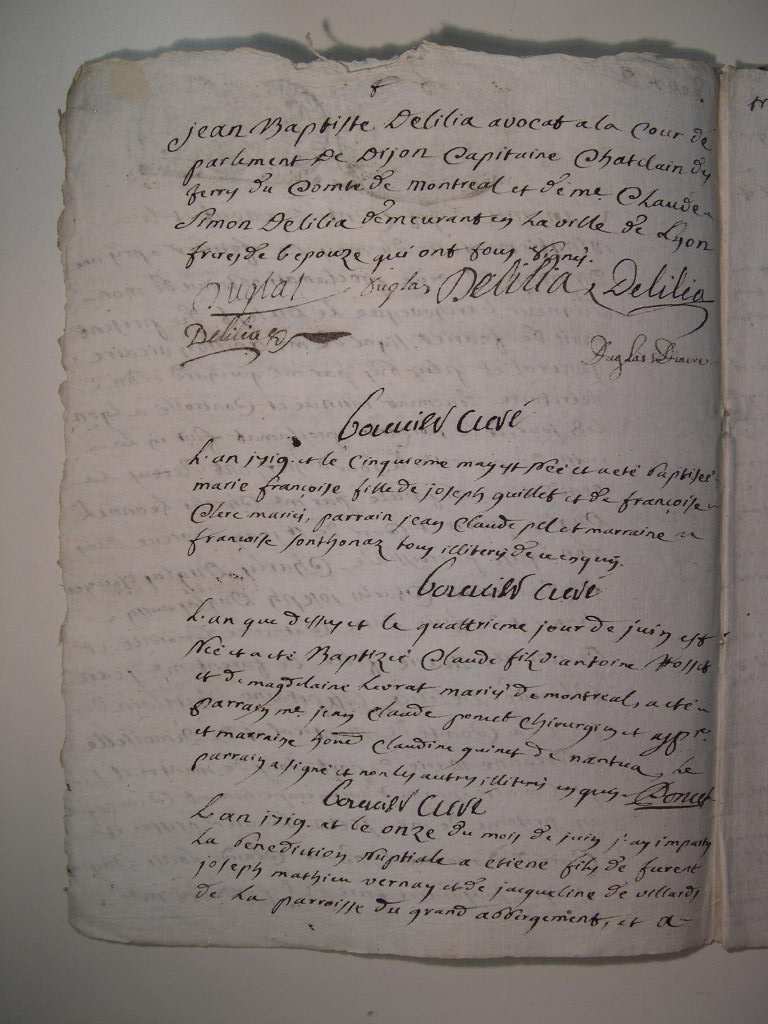 jean Baptiste Delilia avocat a la Cour de
parlement De Dijon Capitaine Chatelain des
terres du Comté de montreal et de me. Claude
Simon Delilia demeurant en La ville de Lyon
freres de lepouze qui ont tous signes.
Duglas Duglas Delilia Delilia
Delilia
Duglas
curé
L'an 1719. et le cinquieme may est Née et a eté baptisée
marie françoise fille de joseph quillet et de françoise
Clerc maries, parrain jean Claude et marraine
françoise sonthonaz tous illiteres de ce enquis.
curé
L'an que dessus et le quattrieme jour de juin est
Né et a eté Baptizé Claude fils d'antoine
et de magdelaine Levrat maries de montreal, a eté
parrain me. jean Claude poncet Chirurgien et
et marraine Claudine quinet de nantua, Le
parrain a signé et non les autres illiteres enquis Poncet
curé
L'an 1719. et le onze du mois de juin j'ay imparty
La benediction Nuptiale a etiene fils de furent
joseph mathieu vernay et de jacqueline de villards
de La parroisse du grand abbergement, et a